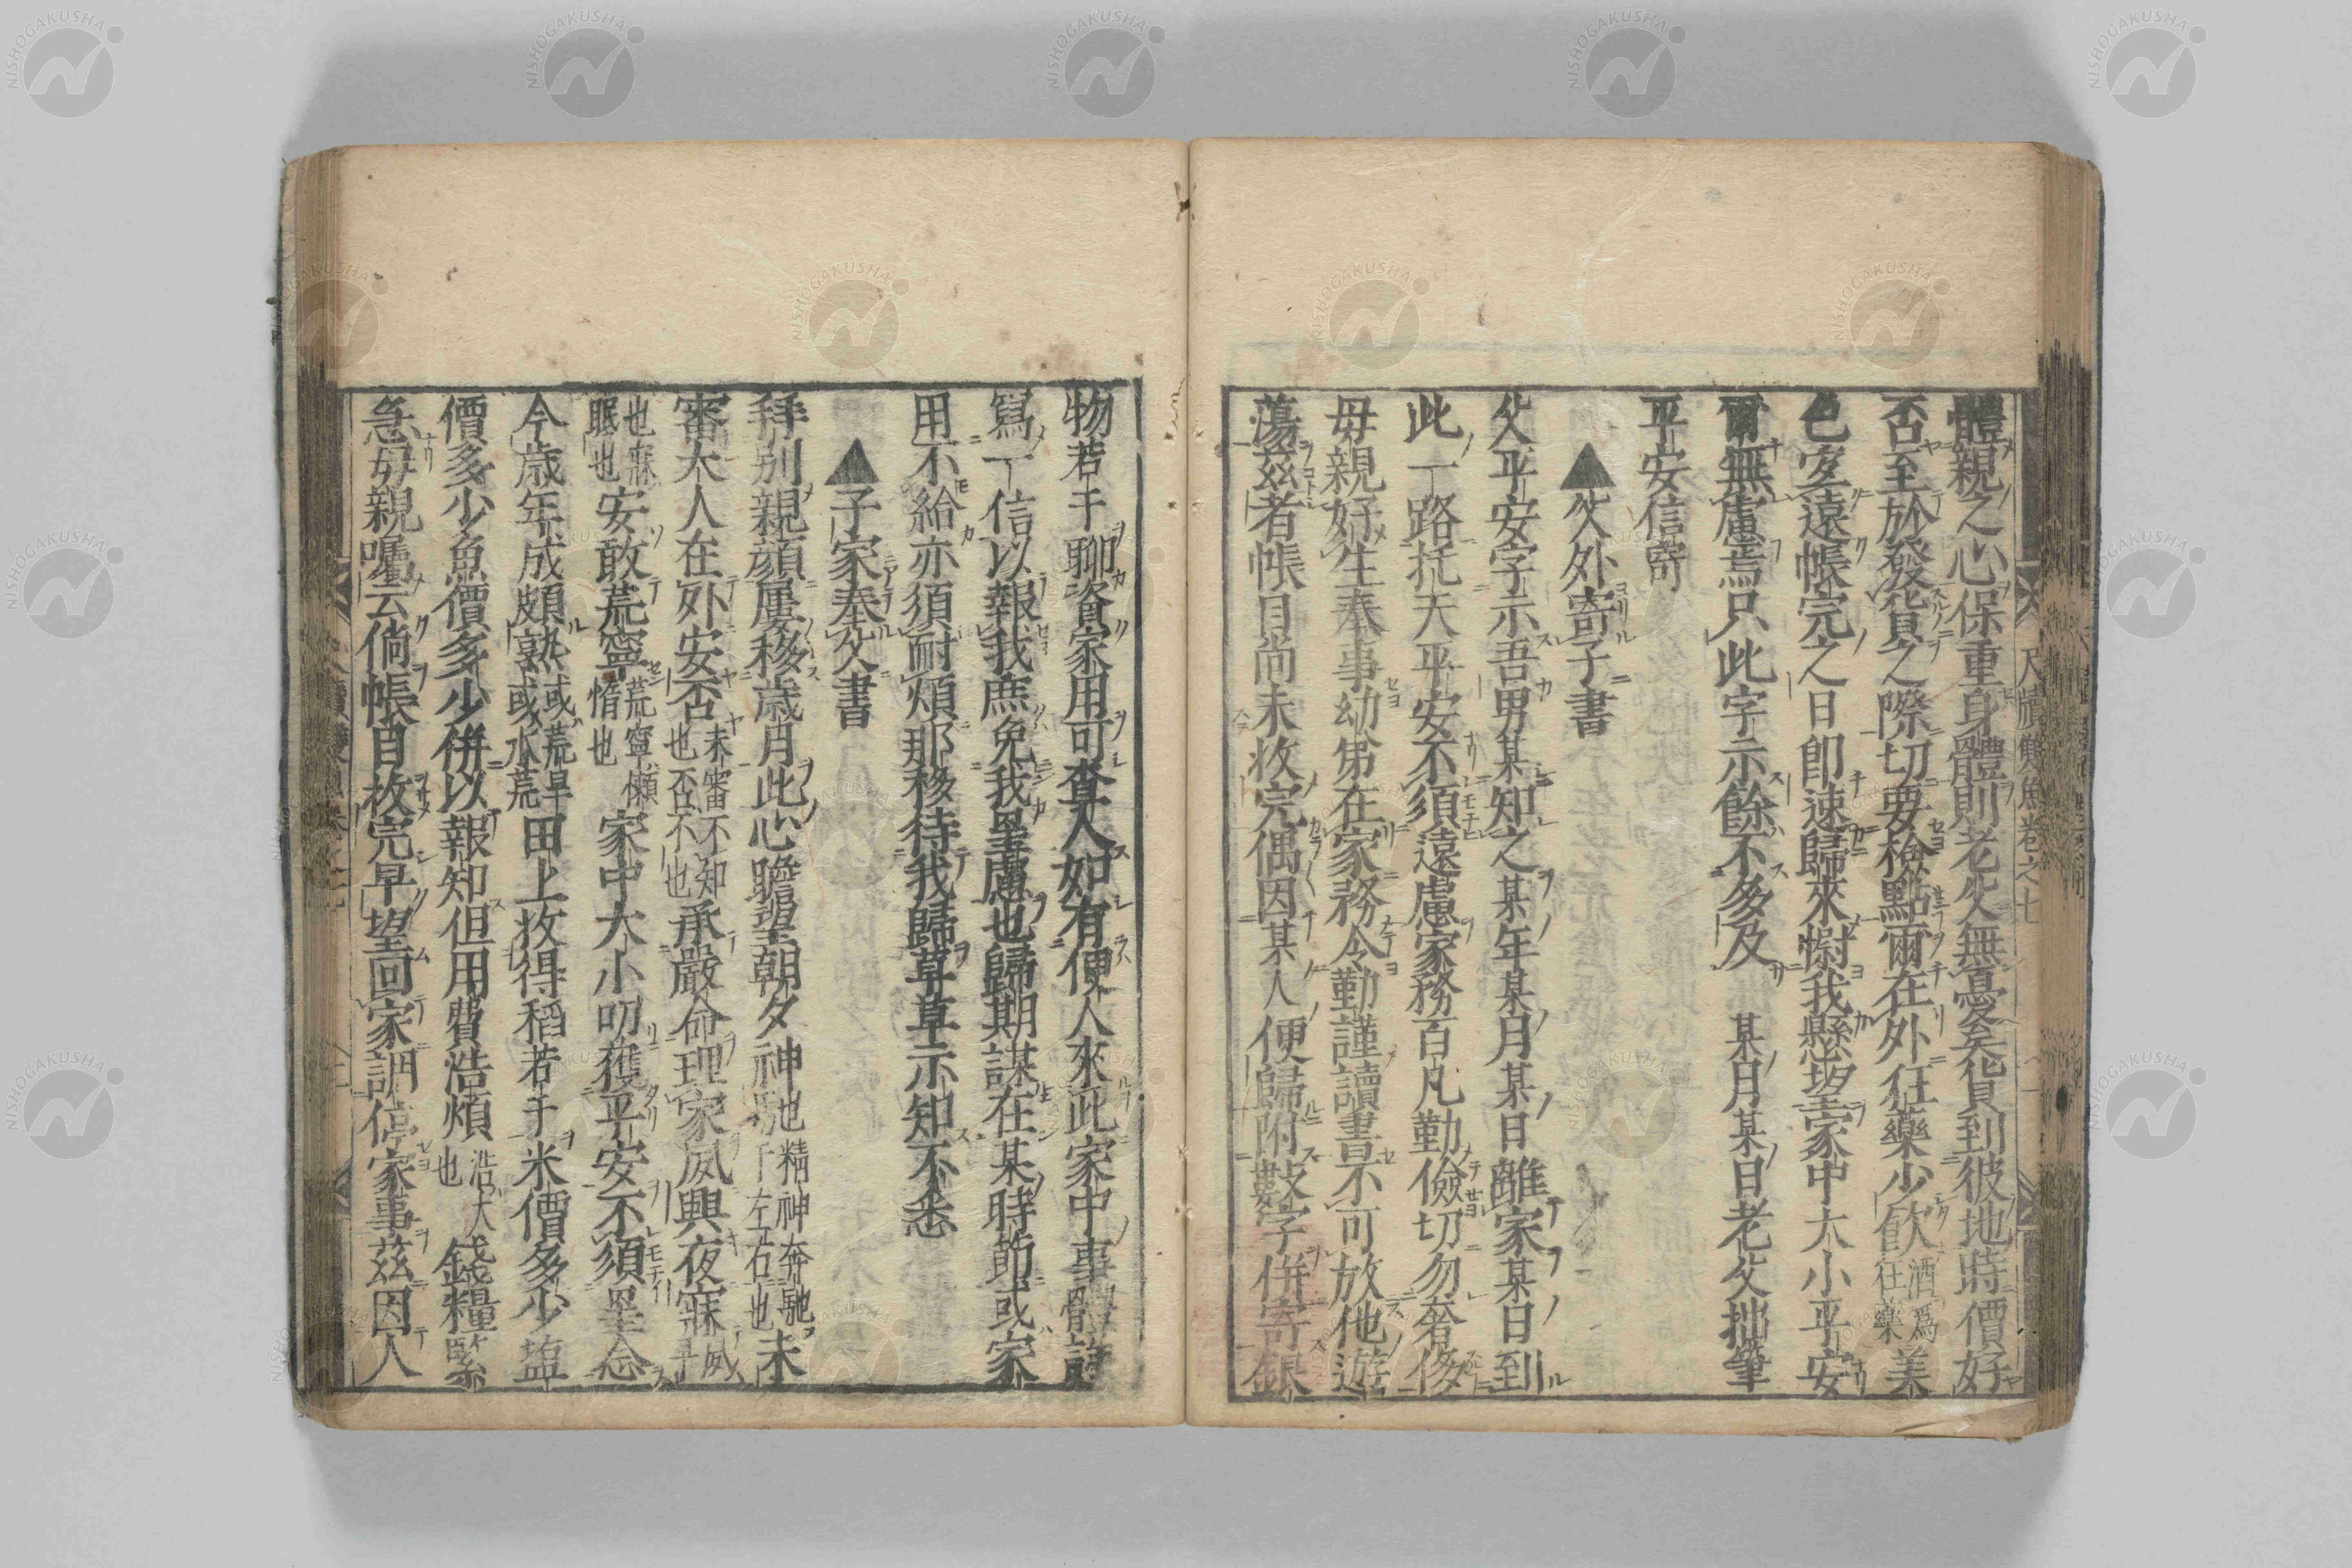 體親之心保重身體則老父無憂矣貨到彼地時價好
否至於發貨之際切要檢點爾在外狂藥少飲酒爲狂藥美
色宜遠帳完之日卽速歸來慰我懸望家中大小平安
爾無慮焉只此字示餘不多及 某月某日老父拙筆
平安信寄
▲父外寄子書
父平安字示吾男某知之某年某月某日離家某日到
此一路托天平安不須遠慮家務百凡勤儉切勿奢侈
母親好生奉事幼弟在家務令勤謹讀書不可放他遊
蕩茲者帳目尚未收完偶因某人便歸附數字併寄銀
物若干聊資家用可查入如有便人來此家中事體詳
寫一信以報我庶免我罣慮也歸期謀在某時節或家
用不給亦須耐煩那移待我歸草草示知不悉
▲子家奉父書
拜別親顏屢移歲月此心瞻望朝夕神馳也精神奔馳于左右也未
審大人在外安否未審不知也否不也承嚴命理家夙興夜寐夙早
也寐眠也安敢荒寧荒寧懶惰也家中大小叨獲平安不須罣念
今歲年成頗熟或荒旱或水荒田上收得稻若干米價多少塩
價多少魚價多少併以報知但用費浩煩浩大也錢糧緊
急母親囑云倘帳目收完早望回家調停家事茲因人
尺牘雙魚卷之七